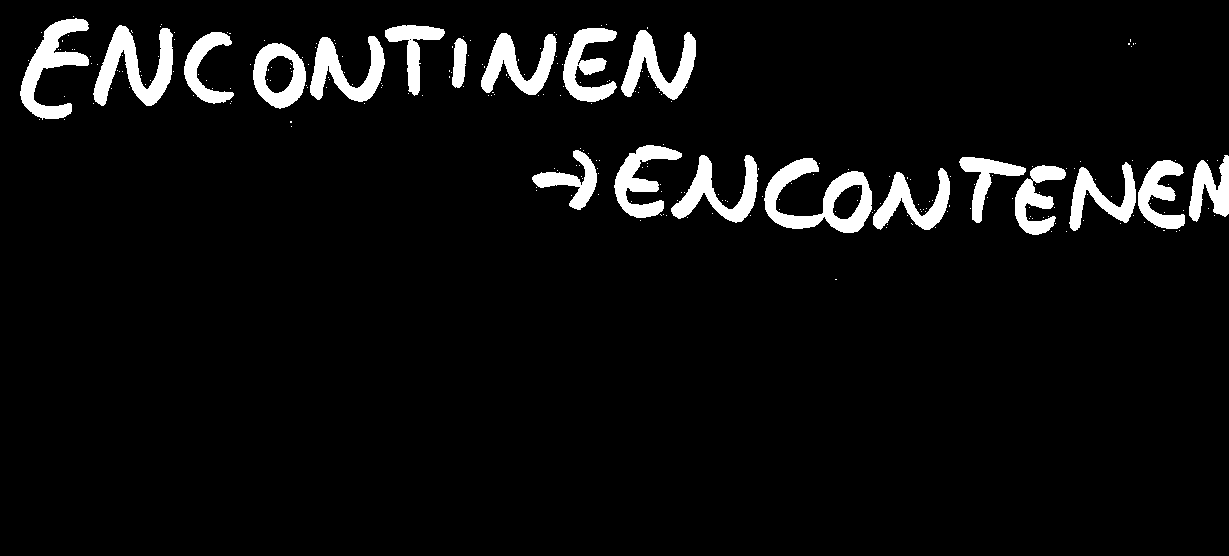 ENCONTINEN
→ENCONTENEN